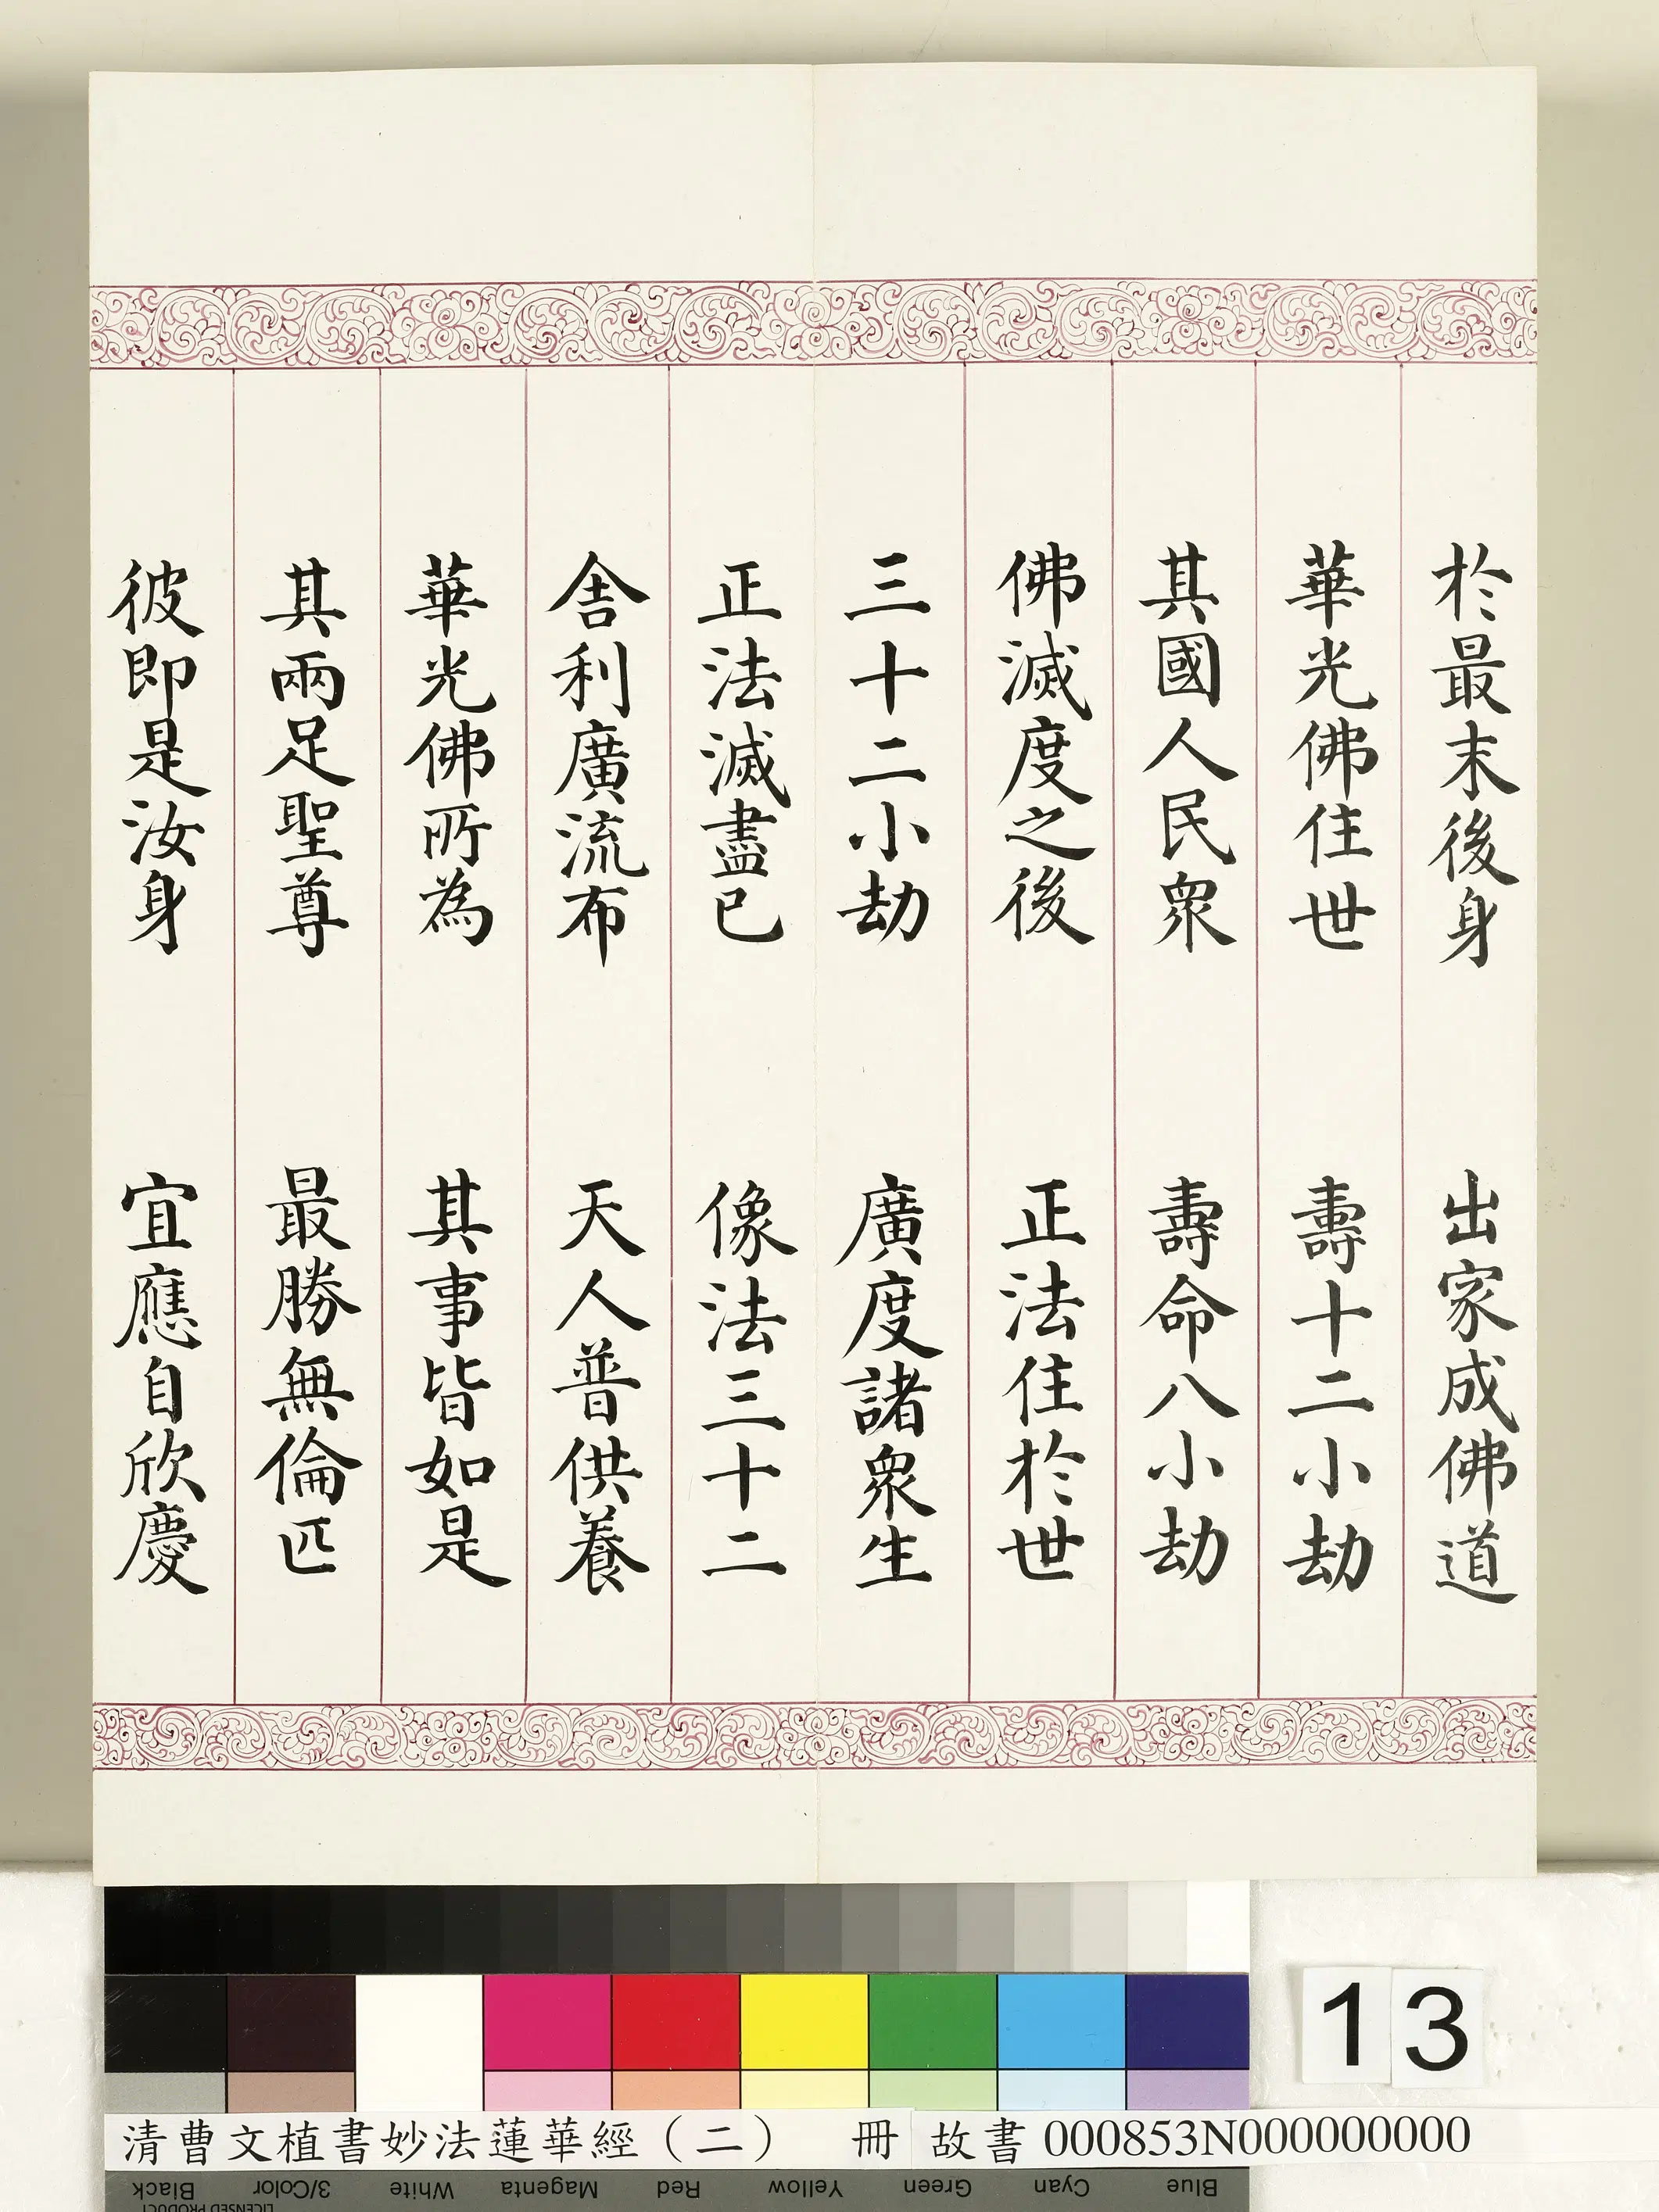 於最末後身　出家成佛道
華光佛住世　壽十二小劫
其國人民衆　壽命八小劫
佛滅度之後　正法住於世
三十二小劫　廣度諸衆生
正法滅盡已　像法三十二
舎利廣流布　天人普供養
華光佛所為　其事皆如是
其兩足聖尊　最勝無倫匹
彼即是汝身　宜應自欣慶
13
清曹文植書妙法蓮華經（二）　冊　故書 000853N000000000
Black 3/Color White Magenta Red Yellow Green Cyan Blue
LICENSED PRODUCT